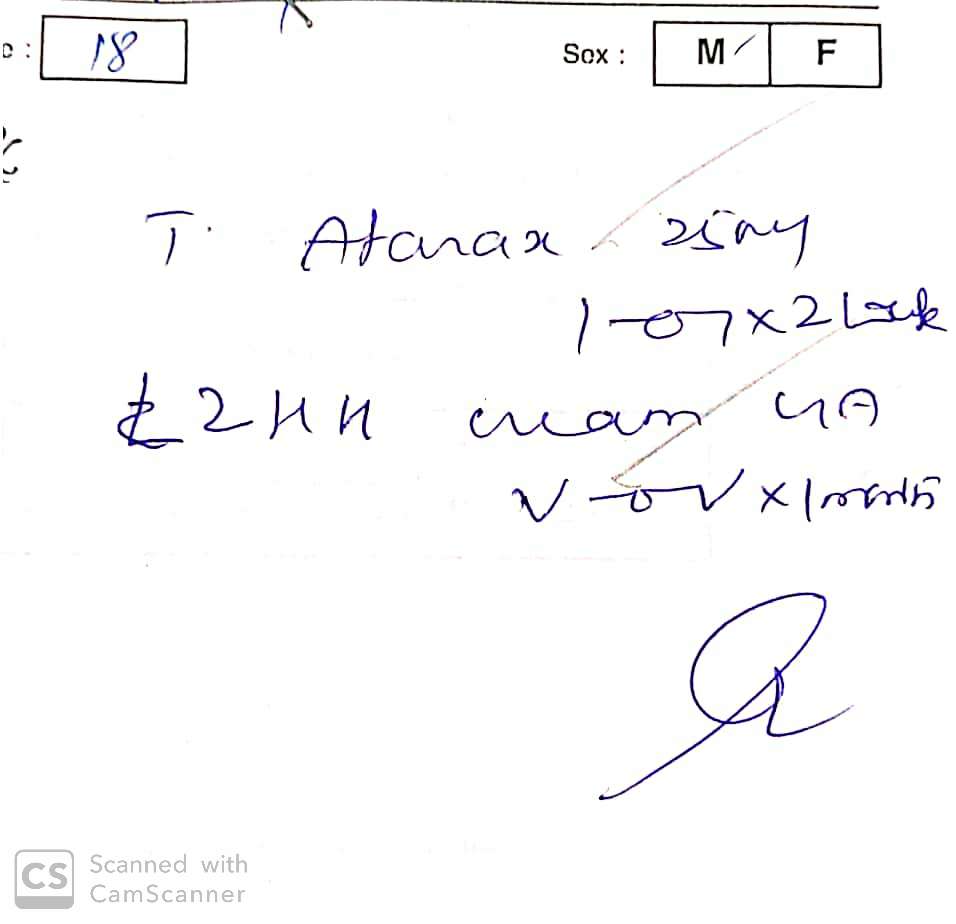 18
Sex : M F
T. Atarax 25mg
1-0-1 x 2 week
cream
x 1 month
CS Scanned with
CamScanner